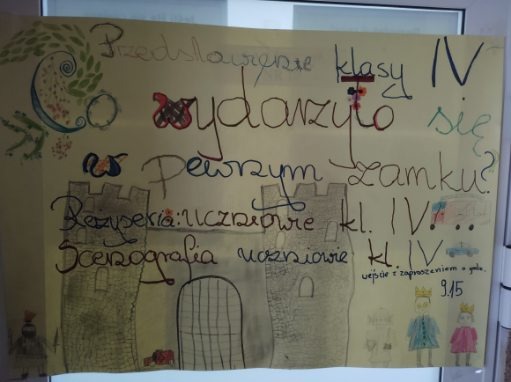 Przedstawienie klasy IV
Co wydarzyło się
w pewnym zamku?
Reżyseria: uczniowie kl. IV...
Scenografia uczniowie kl. IV
wejście z zaproszeniem o godz.
9.15